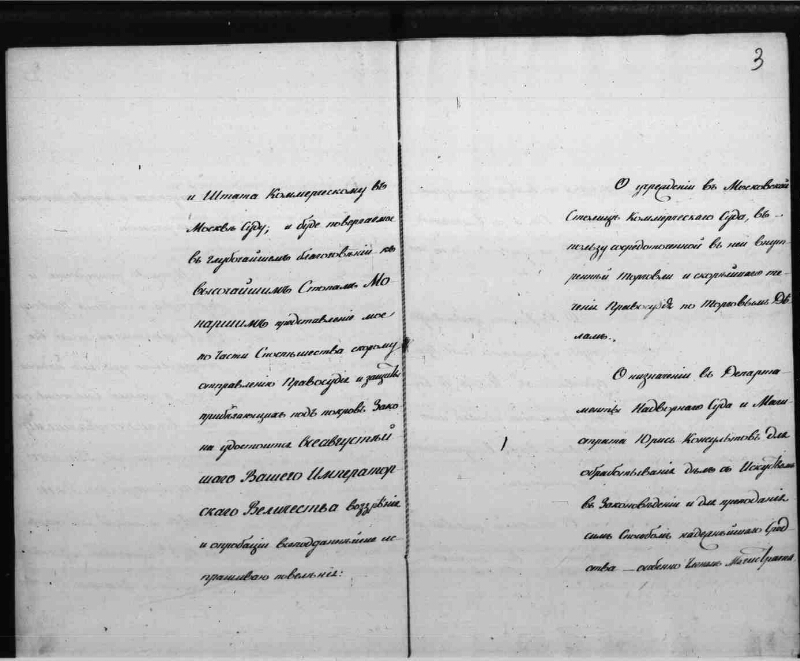 и Штата Коммерческому въ
Москвѣ Суду; и буде повергаемое
въ глубочайшемъ благоговѣніи къ
высочайшимъ Стопамъ Мо-
наршимъ представленіе мое,
по Части Споспѣшества скорому
отправленію Правосудія и защиты
прибѣгающихъ подъ покровъ Зако-
на удостоится Всеавгустѣй
шаго Вашего Император
скаго Величества воззрѣнія
и опробаціи всеподданнѣйше ис
прашиваю повелѣнія:
3
О учрежденіи въ Московской
Столицѣ Коммерческаго Суда, въ
пользу сосредоточенной въ ней внут-
ренней Торговли и скорѣйшаго те-
ченія Правосудія по Торговымъ Дѣ
ламъ.
О назначеніи въ Департа-
менты Надворнаго Суда и Маги
страта Юрисъ Консультовъ для
обработыванія дѣлъ съ Искуствомъ
въ Законовѣденіи и для преподанія
симъ Способомъ надежнѣйшаго Сред
ства особенно Членамъ Магистрата